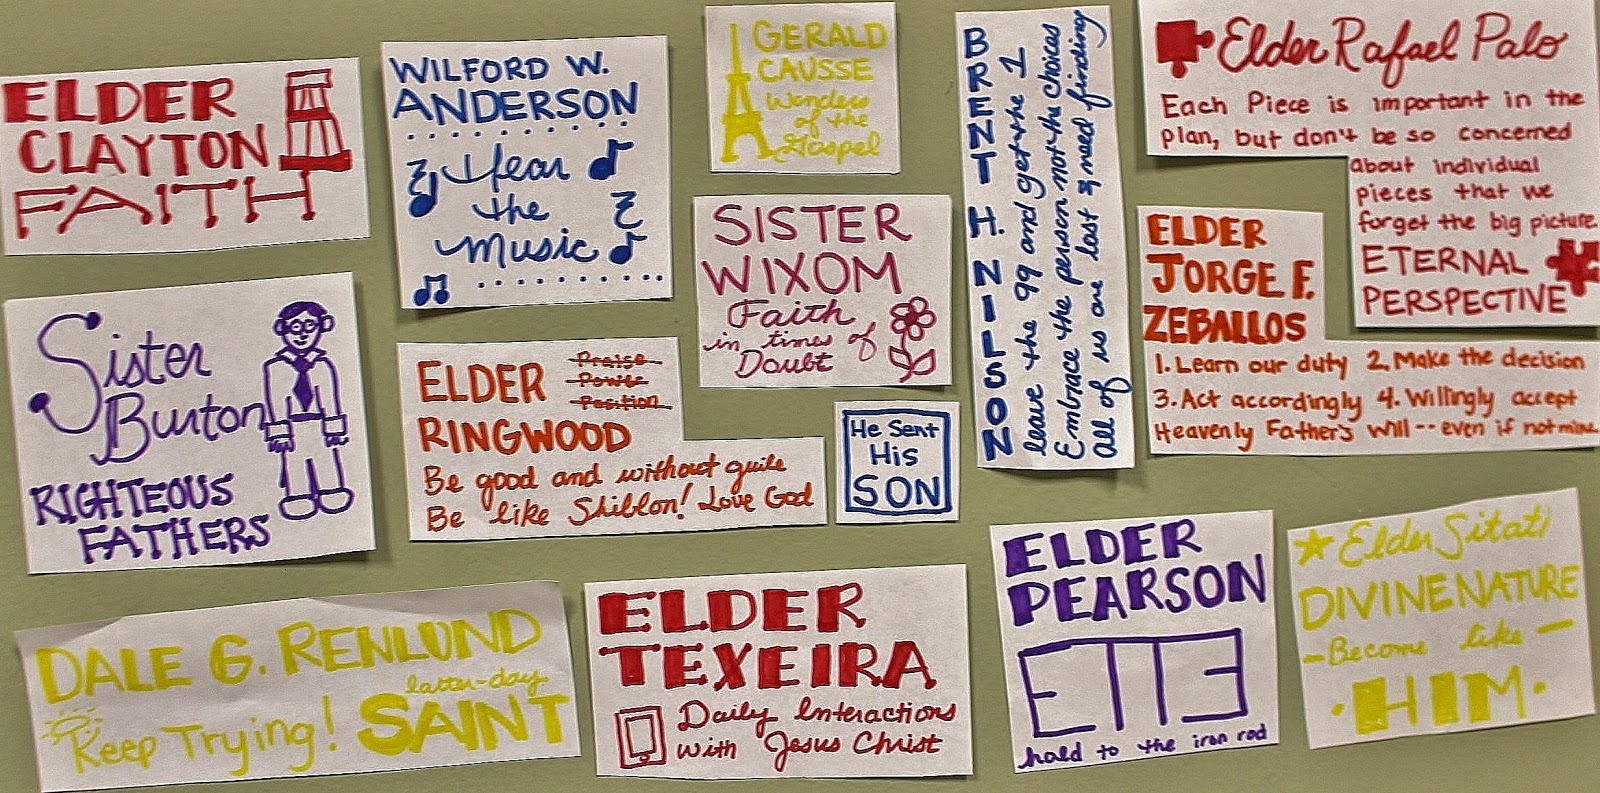 ELDER
CLAYTON
FAITH
WILFORD W.
ANDERSON
Hear
the
Music
GERALD
CAUSSE
Wonders
of the
Gospel
BRENT H. NILSON
leave the 99 and get the 1
Embrace the person not the choices
All of us are lost & need finding
Elder Rafael Palo
Each Piece is important in the
plan, but don't be so concerned
about individual
pieces that we
forget the big picture.
ETERNAL
PERSPECTIVE
Sister
Burton
RIGHTEOUS
FATHERS
ELDER
Praise
Power
Position
RINGWOOD
Be good and without guile
Be like Shiblon! Love God
SISTER
WIXOM
Faith
in times of
Doubt
He Sent
His
SON
ELDER
JORGE F.
ZEBALLOS
1. Learn our duty 2. Make the decision
3. Act accordingly 4. Willingly accept
Heavenly Father's will -- even if not mine
DALE G. RENLUND
Keep Trying!
latter-day
SAINT
ELDER
TEXEIRA
Daily Interactions
with Jesus Christ
ELDER
PEARSON
hold to the iron rod
Elder Sitati
DIVINE NATURE
- Become like -
HIM